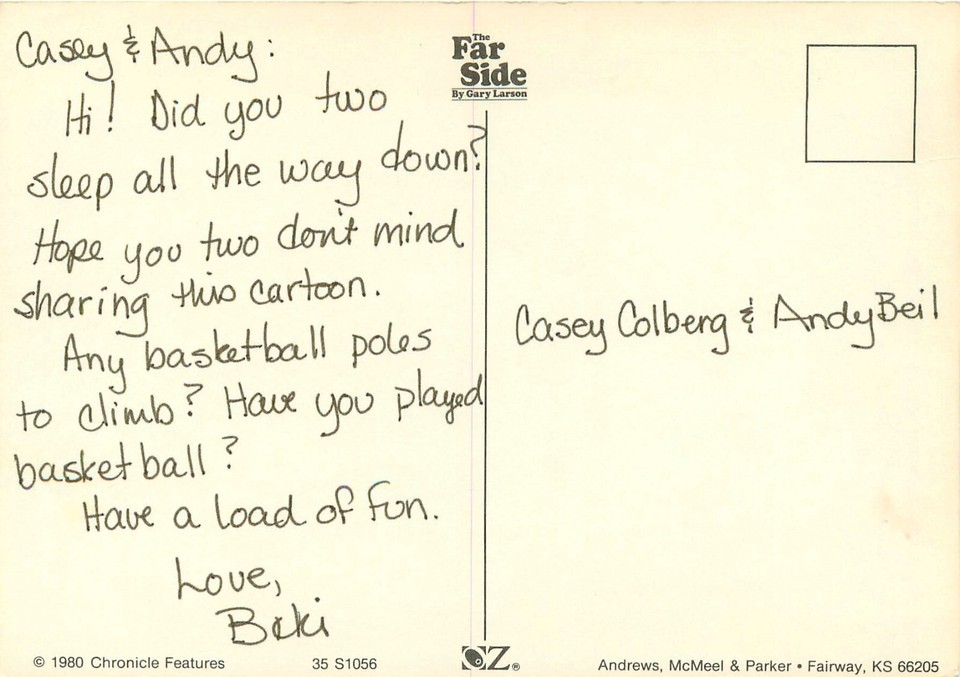 Casey & Andy:
Hi! Did you two
sleep all the way down?
Hope you two don't mind
sharing this cartoon.
Any basketball poles
to climb? Have you played
basketball?
Have a load of fun.
Love,
Beki
The
Far
Side
By Gary Larson
Casey Colberg & Andy Beil
© 1980 Chronicle Features
35 S1056
OZ®
Andrews, McMeel & Parker • Fairway, KS 66205